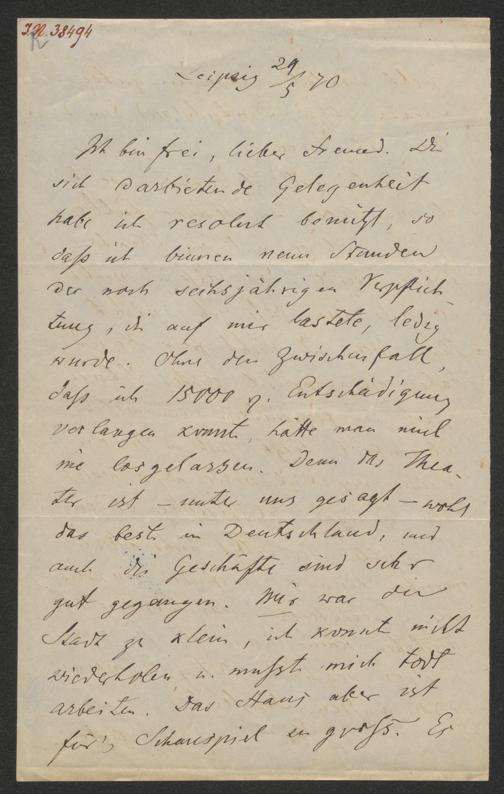 I.N. 38494
Leipzig 29/5 70
Ich bin frei, lieber Freund. Die
sich darbietende Gelegenheit
habe ich resolut benützt, so
daß ich binnen neun Stunden
der noch sechsjährigen Verpflich
tung, die auf mir lastete, ledig
wurde. Ohne den Zwischenfall,
daß ich 15000 Entschädigung
verlangen konnte, hätte man mich
nie losgelassen. Denn das Thea-
ter ist – unter uns gesagt – wohl
das beste in Deutschland, und
auch die Geschäfte sind sehr
gut gegangen. Mir war die
Stadt zu klein, ich konnte nicht
wiederholen u. mußte mich todt
arbeiten. Das Haus aber ist
für's Schauspiel zu groß. Es